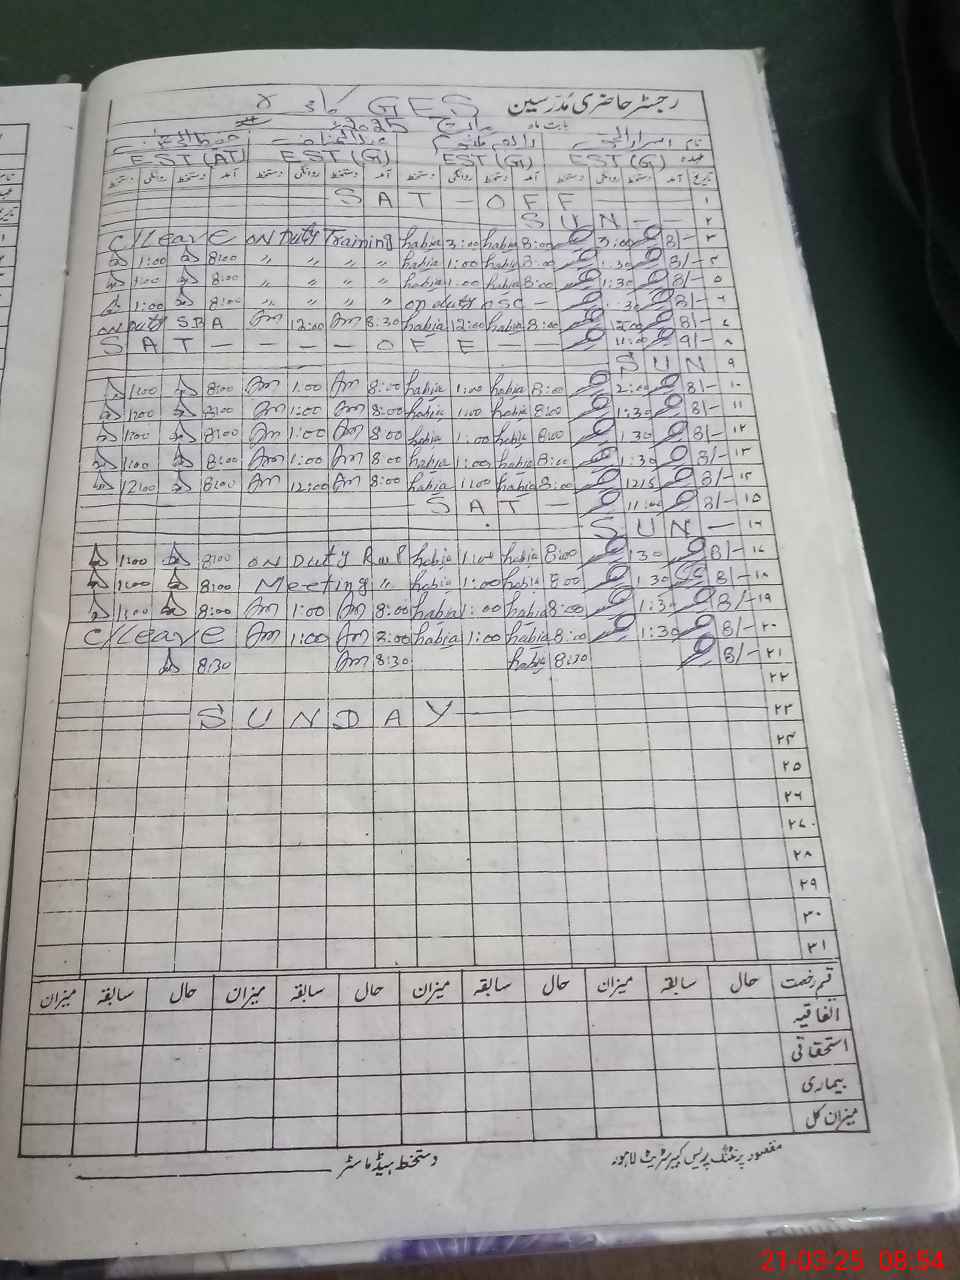 رجسٹر حاضری مُدرّسین GES
بابت ماہ مارچ 2025
نام
عہدہ EST (G) EST (G) EST (G) EST (AT)
تاریخ آمد دستخط روانگی دستخط آمد دستخط روانگی دستخط آمد دستخط روانگی دستخط آمد دستخط روانگی دستخط
۱ SAT - OFF
۲ SUN --
۳ 8/- 3:00 8:00 habia 3:00 habia on Duty Training C/Leave
۴ 8/- 1:30 8:00 habia 1:00 habia " " " " 8:00 1:00
۵ 8/- 1:30 8:00 habia 1:00 habia " " " " 8:00 1:00
۶ 8/- 1:30 on duty PSC - " " " " 8:00 1:00
۷ 8/- 12:00 8:00 habia 12:00 habia 8:30 12:00 on Duty SBA
۸ 9/- 11:00 SAT ---- OFF --
۹ SUN
۱۰ 8/- 2:00 8:00 habia 1:00 habia 8:00 1:00 8:00 1:00
۱۱ 8/- 1:30 8:00 habia 1:00 habia 8:00 1:00 8:00 1:00
۱۲ 8/- 1:30 8:00 habia 1:00 habia 8:00 1:00 8:00 1:00
۱۳ 8/- 1:30 8:00 habia 1:00 habia 8:00 1:00 8:00 1:00
۱۴ 8/- 1215 8:00 habia 1:00 habia 8:00 12:00 8:00 12:00
۱۵ 8/- 11:00 SAT -
۱۶ SUN -
۱۷ 8/- 1:30 8:00 habia 1:00 habia on Duty Rwp 8:00 1:00
۱۸ 8/- 1:30 8:00 habia 1:00 habia Meeting " 8:00 1:00
۱۹ 8/- 1:30 8:00 habia 1:00 habia 8:00 1:00 8:00 1:00
۲۰ 8/- 1:30 8:00 habia 1:00 habia 8:00 1:00 C/Leave
۲۱ 8/- 8:30 habia 8:30 8:30
۲۲
۲۳ SUNDAY
۲۴
۲۵
۲۶
۲۷
۲۸
۲۹
۳۰
۳۱
قسم رخصت حال سابقہ میزان حال سابقہ میزان حال سابقہ میزان حال سابقہ میزان
اتفاقیہ
استحقاقی
بیماری
میزان کل
مقصود پرنٹنگ پریس کبیر سٹریٹ لاہور دستخط ہیڈ ماسٹر
21-03-25 08:54